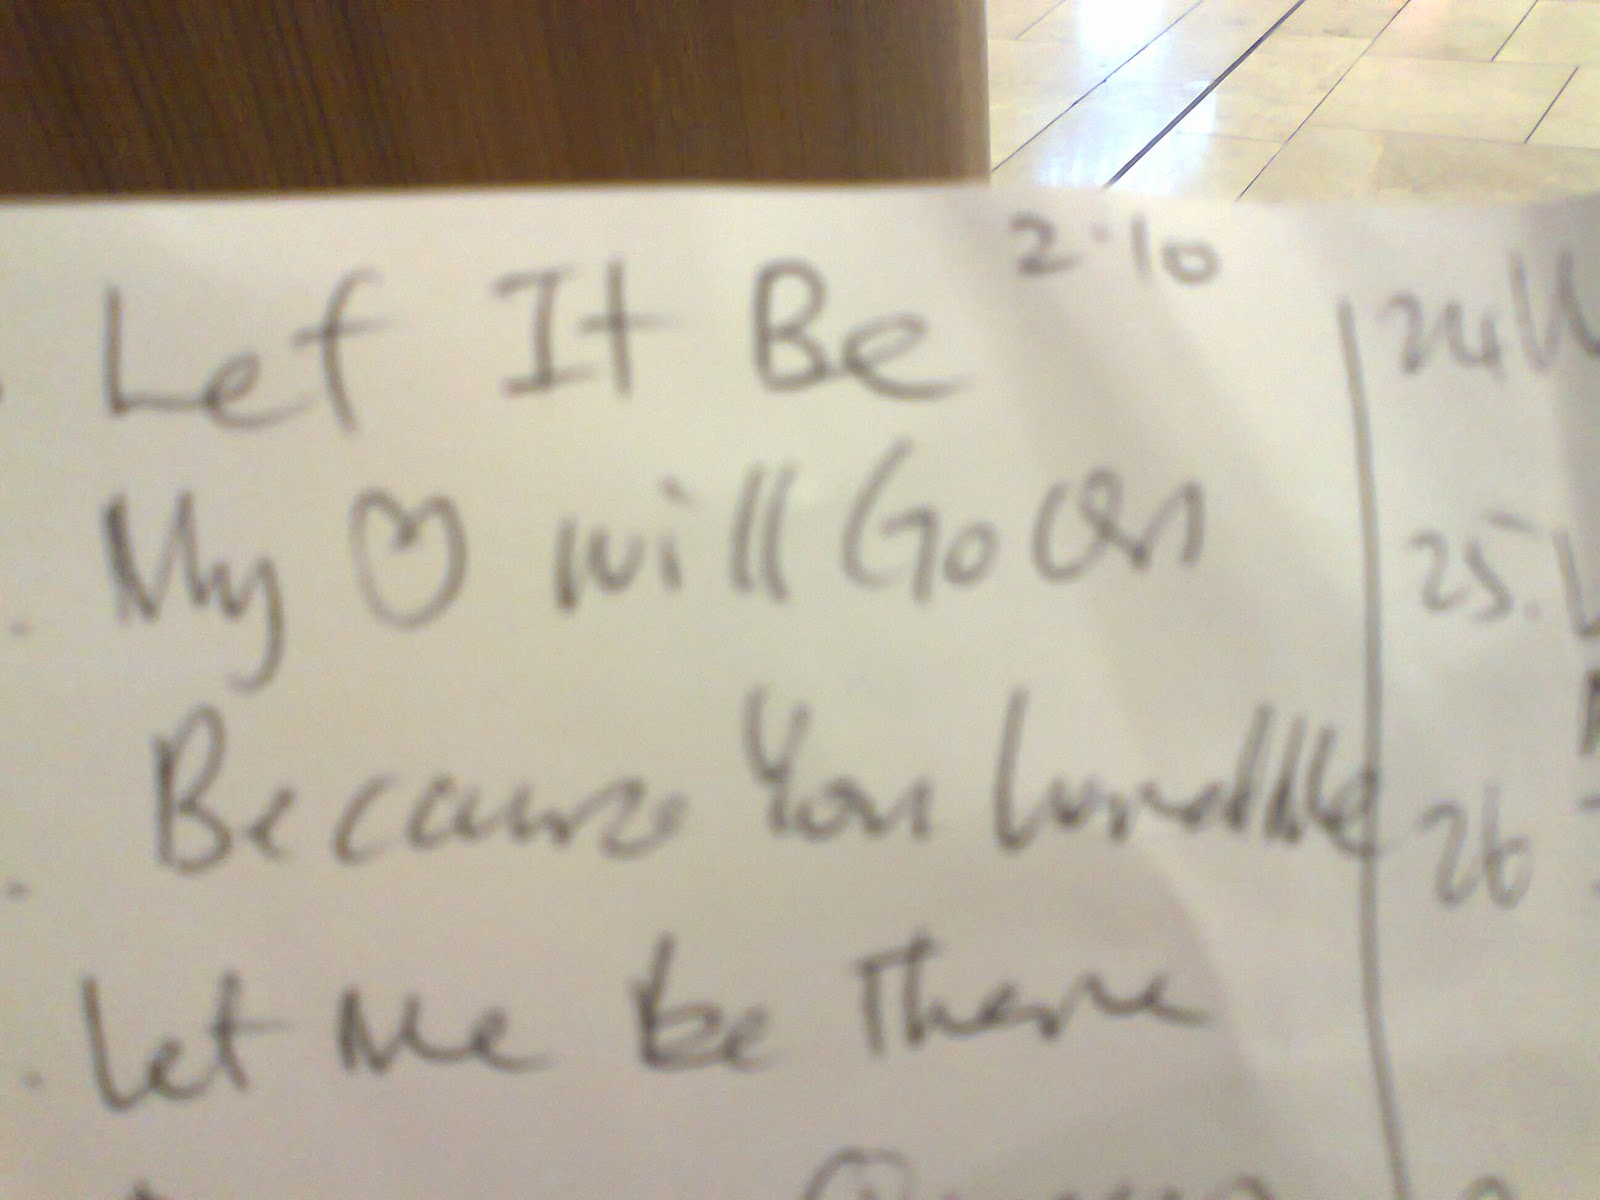 2.10
Let It Be
My ♡ will Go On
Because You Loved Me
Let Me be There
24
25.
26